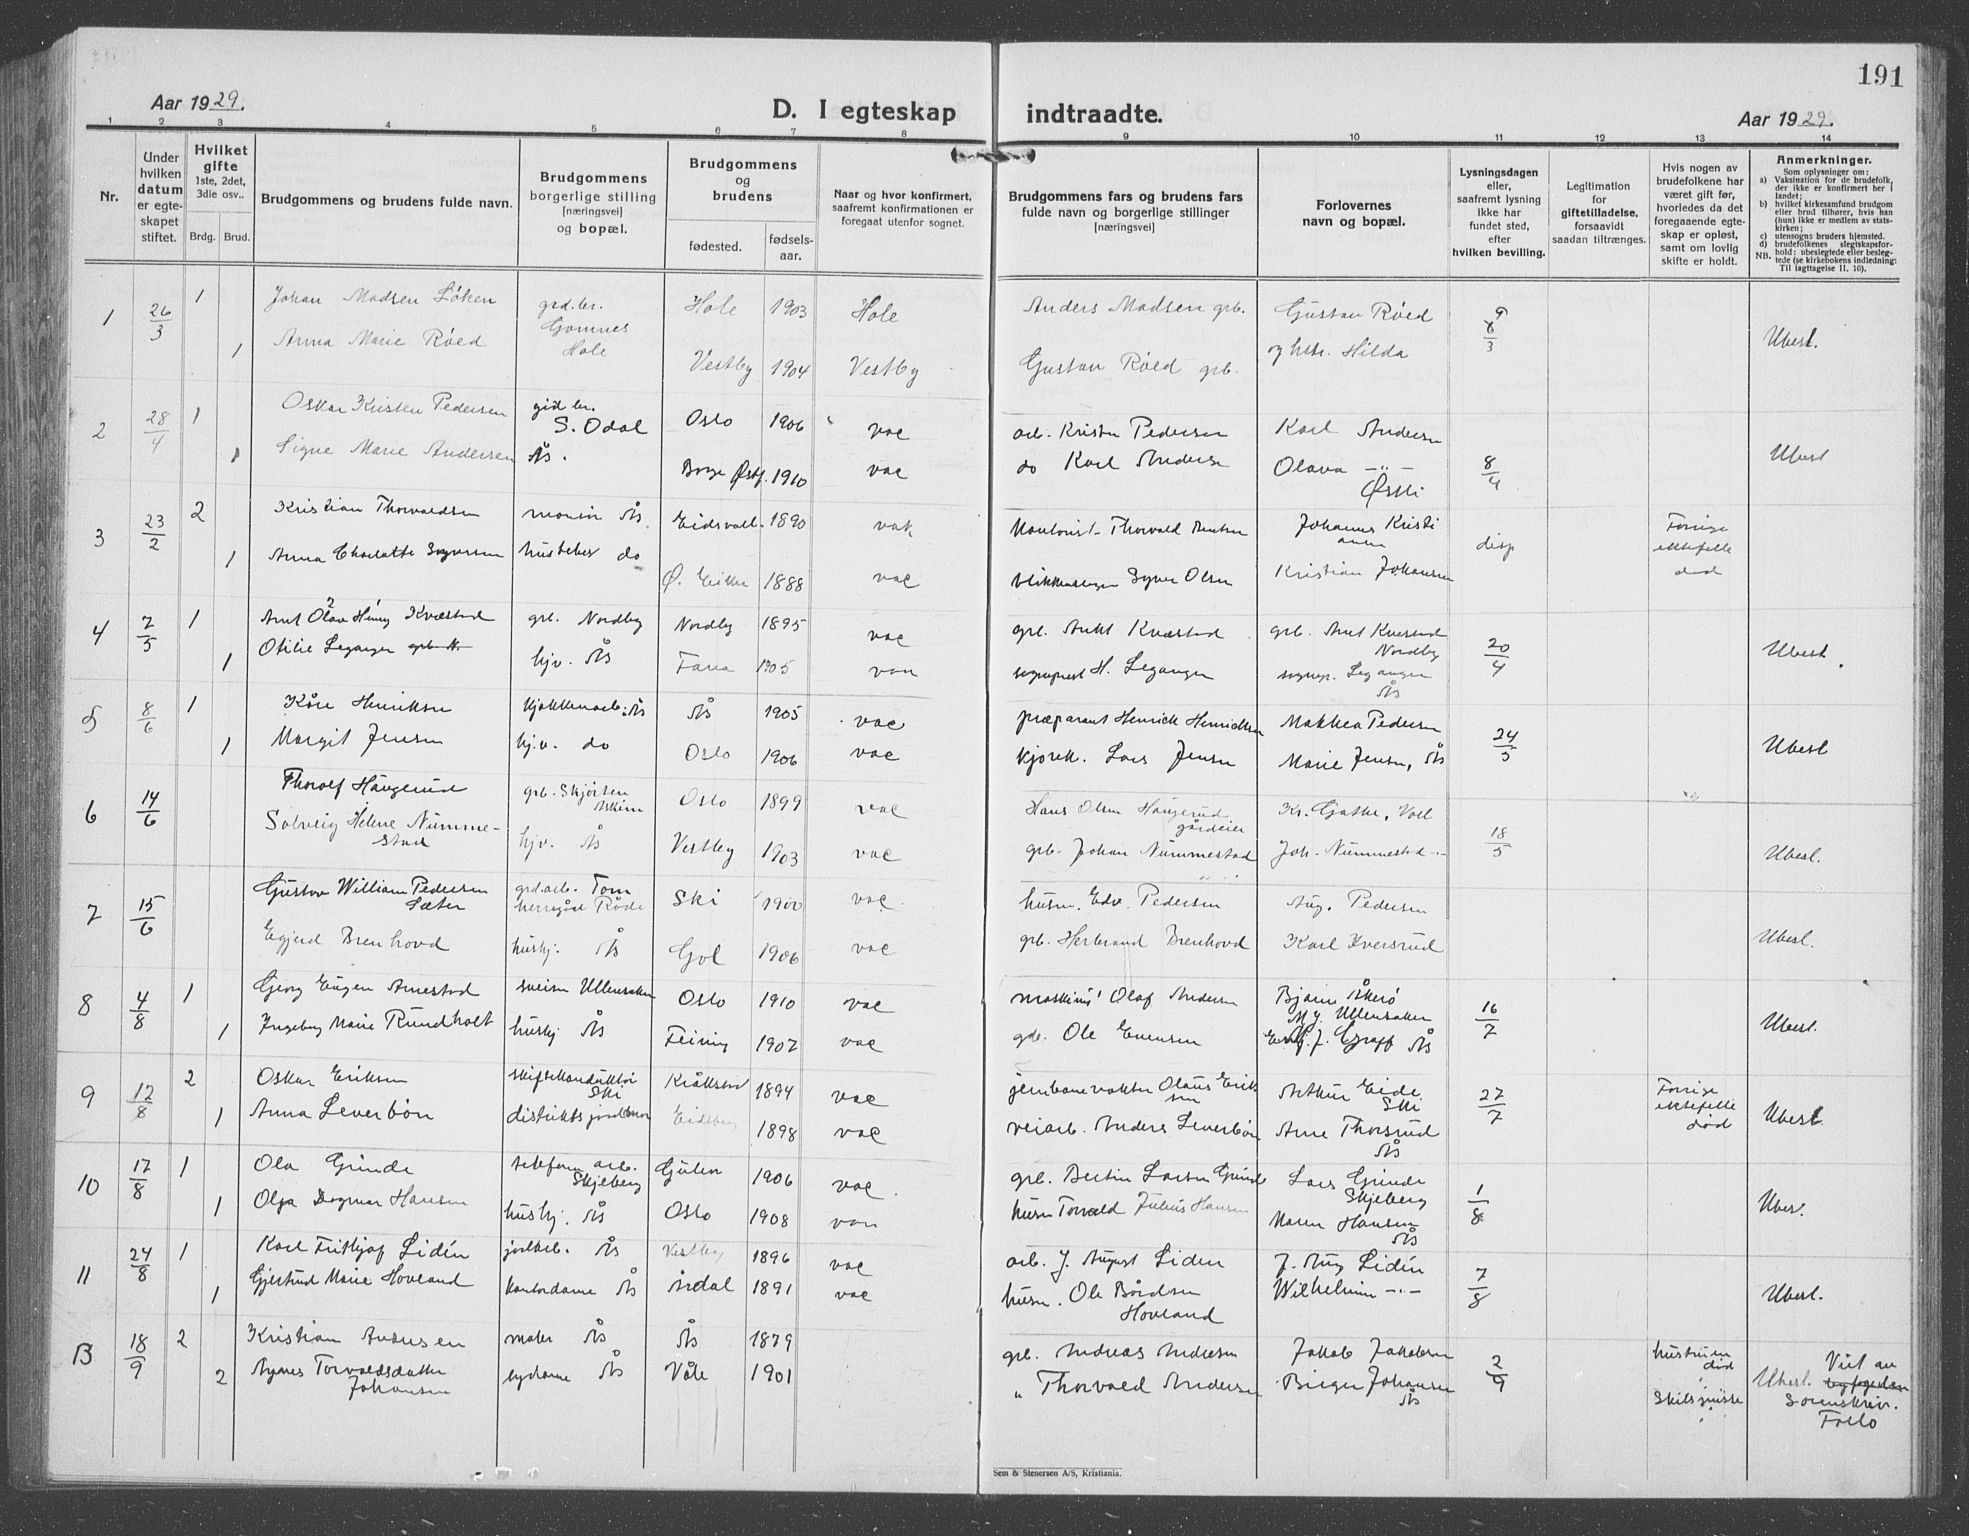 191
Aar 1929.
D. I egteskap indtraadte.
Aar 1929.
1 2 3 4 5 6 7 8 9 10 11 12 13 14
Nr.
Under hvilken datum er egteskapet stiftet.
Hvilket gifte
1ste, 2det, 3die osv..
Brdg. Brud.
Brudgommens og brudens fulde navn.
Brudgommens borgerlige stilling [næringsvei] og bopæl.
Brudgommens og brudens
fødested.
fødselsaar.
Naar og hvor konfirmert, saafremt konfirmationen er foregaat utenfor sognet.
Brudgommens fars og brudens fars fulde navn og borgerlige stillinger [næringsvei]
Forlovernes navn og bopæl.
Lysningsdagen eller, saafremt lysning ikke har fundet sted, efter hvilken bevilling.
Legitimation for giftetilladelse, forsaavidt saadan tiltrænges.
Hvis nogen av brudefolkene har været gift før, hvorledes da det foregaaende egteskap er opløst, samt om lovlig skifte er holdt.
Anmerkninger.
Som oplysninger om:
a) Vaksination for de brudefolk, der ikke er konfirmert her i landet;
b) hvilket kirkesamfund brudgom eller brud tilhører, hvis han (hun) ikke er medlem av statskirken;
c) utensogns bruders hjemsted.
d) brudefolkenes slegtskapsforhold: ubeslegtede eller beslegtede (se kirkebokens indledning: Til iagttagelse II. 10).
NB.
1 26/3 1 Johan Madsen Løken grd.br. Gomnes Hole Hole 1903 Hole Anders Madsen grb. Gustav Røed 9/3 Ubesl.
1 Anna Marie Røed Vestby 1904 Vestby Gustav Røed grb. og hstr. Hilda
2 28/4 1 Oskar Kristen Pedersen S. Odal Oslo 1906 vac arb. Kristen Pedersen Karl Andersen 8/4 Ubesl
1 Signe Marie Andersen Ås. Borge Østf. 1910 vac do Karl Andersen Olava -"-
3 23/2 2 Kristian Thorvaldsen Ås. Eidsvoll 1890 vak Thorvald Johannes Kristiansen disp Forrige ektefelle død
1 Anna Charlotte do Ø. Eiker 1888 vac Syver Olsen Kristian Johansen
4 7/5 1 Olav Henry Kvæstad grb. Nordby Nordby 1895 vac grb. Kvæstad grb. Nordby 20/4 Ubesl.
1 Otilie Leganger hjv. Ås Fana 1905 vac sogneprest H. Leganger sognepr. Leganger Ås
5 8/6 1 Kåre Henriksen Ås Ås 1905 vac præparant Henrick Henricksen Pedersen 24/5 Ubesl
1 Margit Jensen hj.v. do Oslo 1906 vac Lars Jensen Marie Jensen, Ås
6 14/6 Thorolf Haugerud grb. Oslo 1899 vac Hans Olsen Haugerud gårdeier 18/5 Ubesl.
Solveig Helene Nummestad hjv. Ås Vestby 1903 vac grb. Johan Nummestad Joh. Nummestad
7 15/6 Gustav William Pedersen Sæter grd.arb. Tom herregård Råde Ski 1900 vac. husm. Edv. Pedersen Aug. Pedersen Ubesl.
Brenhovd hushj. Ås Gol 1906 vac grb. Herbrand Brenhovd Karl Kversrud
8 4/8 1 Georg Eugen Arnestad Ullensaker Oslo 1910 vac Olaf Andersen Ullensaker 16/7 Ubesl.
1 Ingeborg Marie Rundholt hushj Ås Feiring 1907 vac Ole Evensen Graff Ås
9 12/8 2 Oskar Eriksen skiftekonduktør Ski Kråkstad 1894 vac jernbanevokter Olaus Eriksen Arthur Eide. Ski 27/7 Forrige ektefelle død Ubesl
1 Anna Leverbøn 1898 vac veiarb. Anders Leverbøn Arne Thorsrud Ås
10 17/8 1 Ola Grinde telefonarb. Skjeberg Gulen 1906 vac. Lars Grinde Skjeberg 1/8 Ubesl.
1 Olga Dagmar Hansen hushj. Ås Oslo 1908 vac husm Torvald Julius Hansen Maren Hansen Ås
11 24/8 1 Karl Fritjof Lidén Ås Vestby 1896 vac arb. J. August Liden J. Aug Lidén 7/8 Ubesl.
1 Gjertrud Marie Hovland kontordame Ås Årdal 1891 vac husm. Ole Bårdsen Hovland -"-
B 18/9 2 Kristian Andersen maler Ås Ås 1879 grb. Andreas Andersen Jakob Jakobsen 2/9 hustruen død Ubesl. Viet av byfogeden Sorenskriv. Follo
2 Agnes Johansen sydame Ås Våle 1901 " Thorvald Andersen Birger Johansen Ås Skilsmisse
Sem & Stenersen A/S, Kristiania.